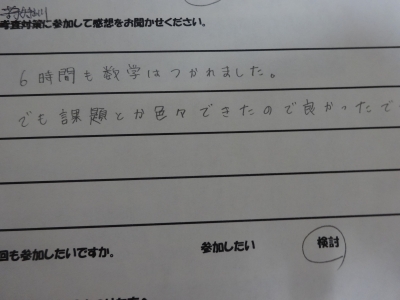 考査対策に参加して感想をお聞かせください。
6時間も数学はつかれました。
でも課題とか色々できたので良かったで
回も参加したいですか。 参加したい 検討